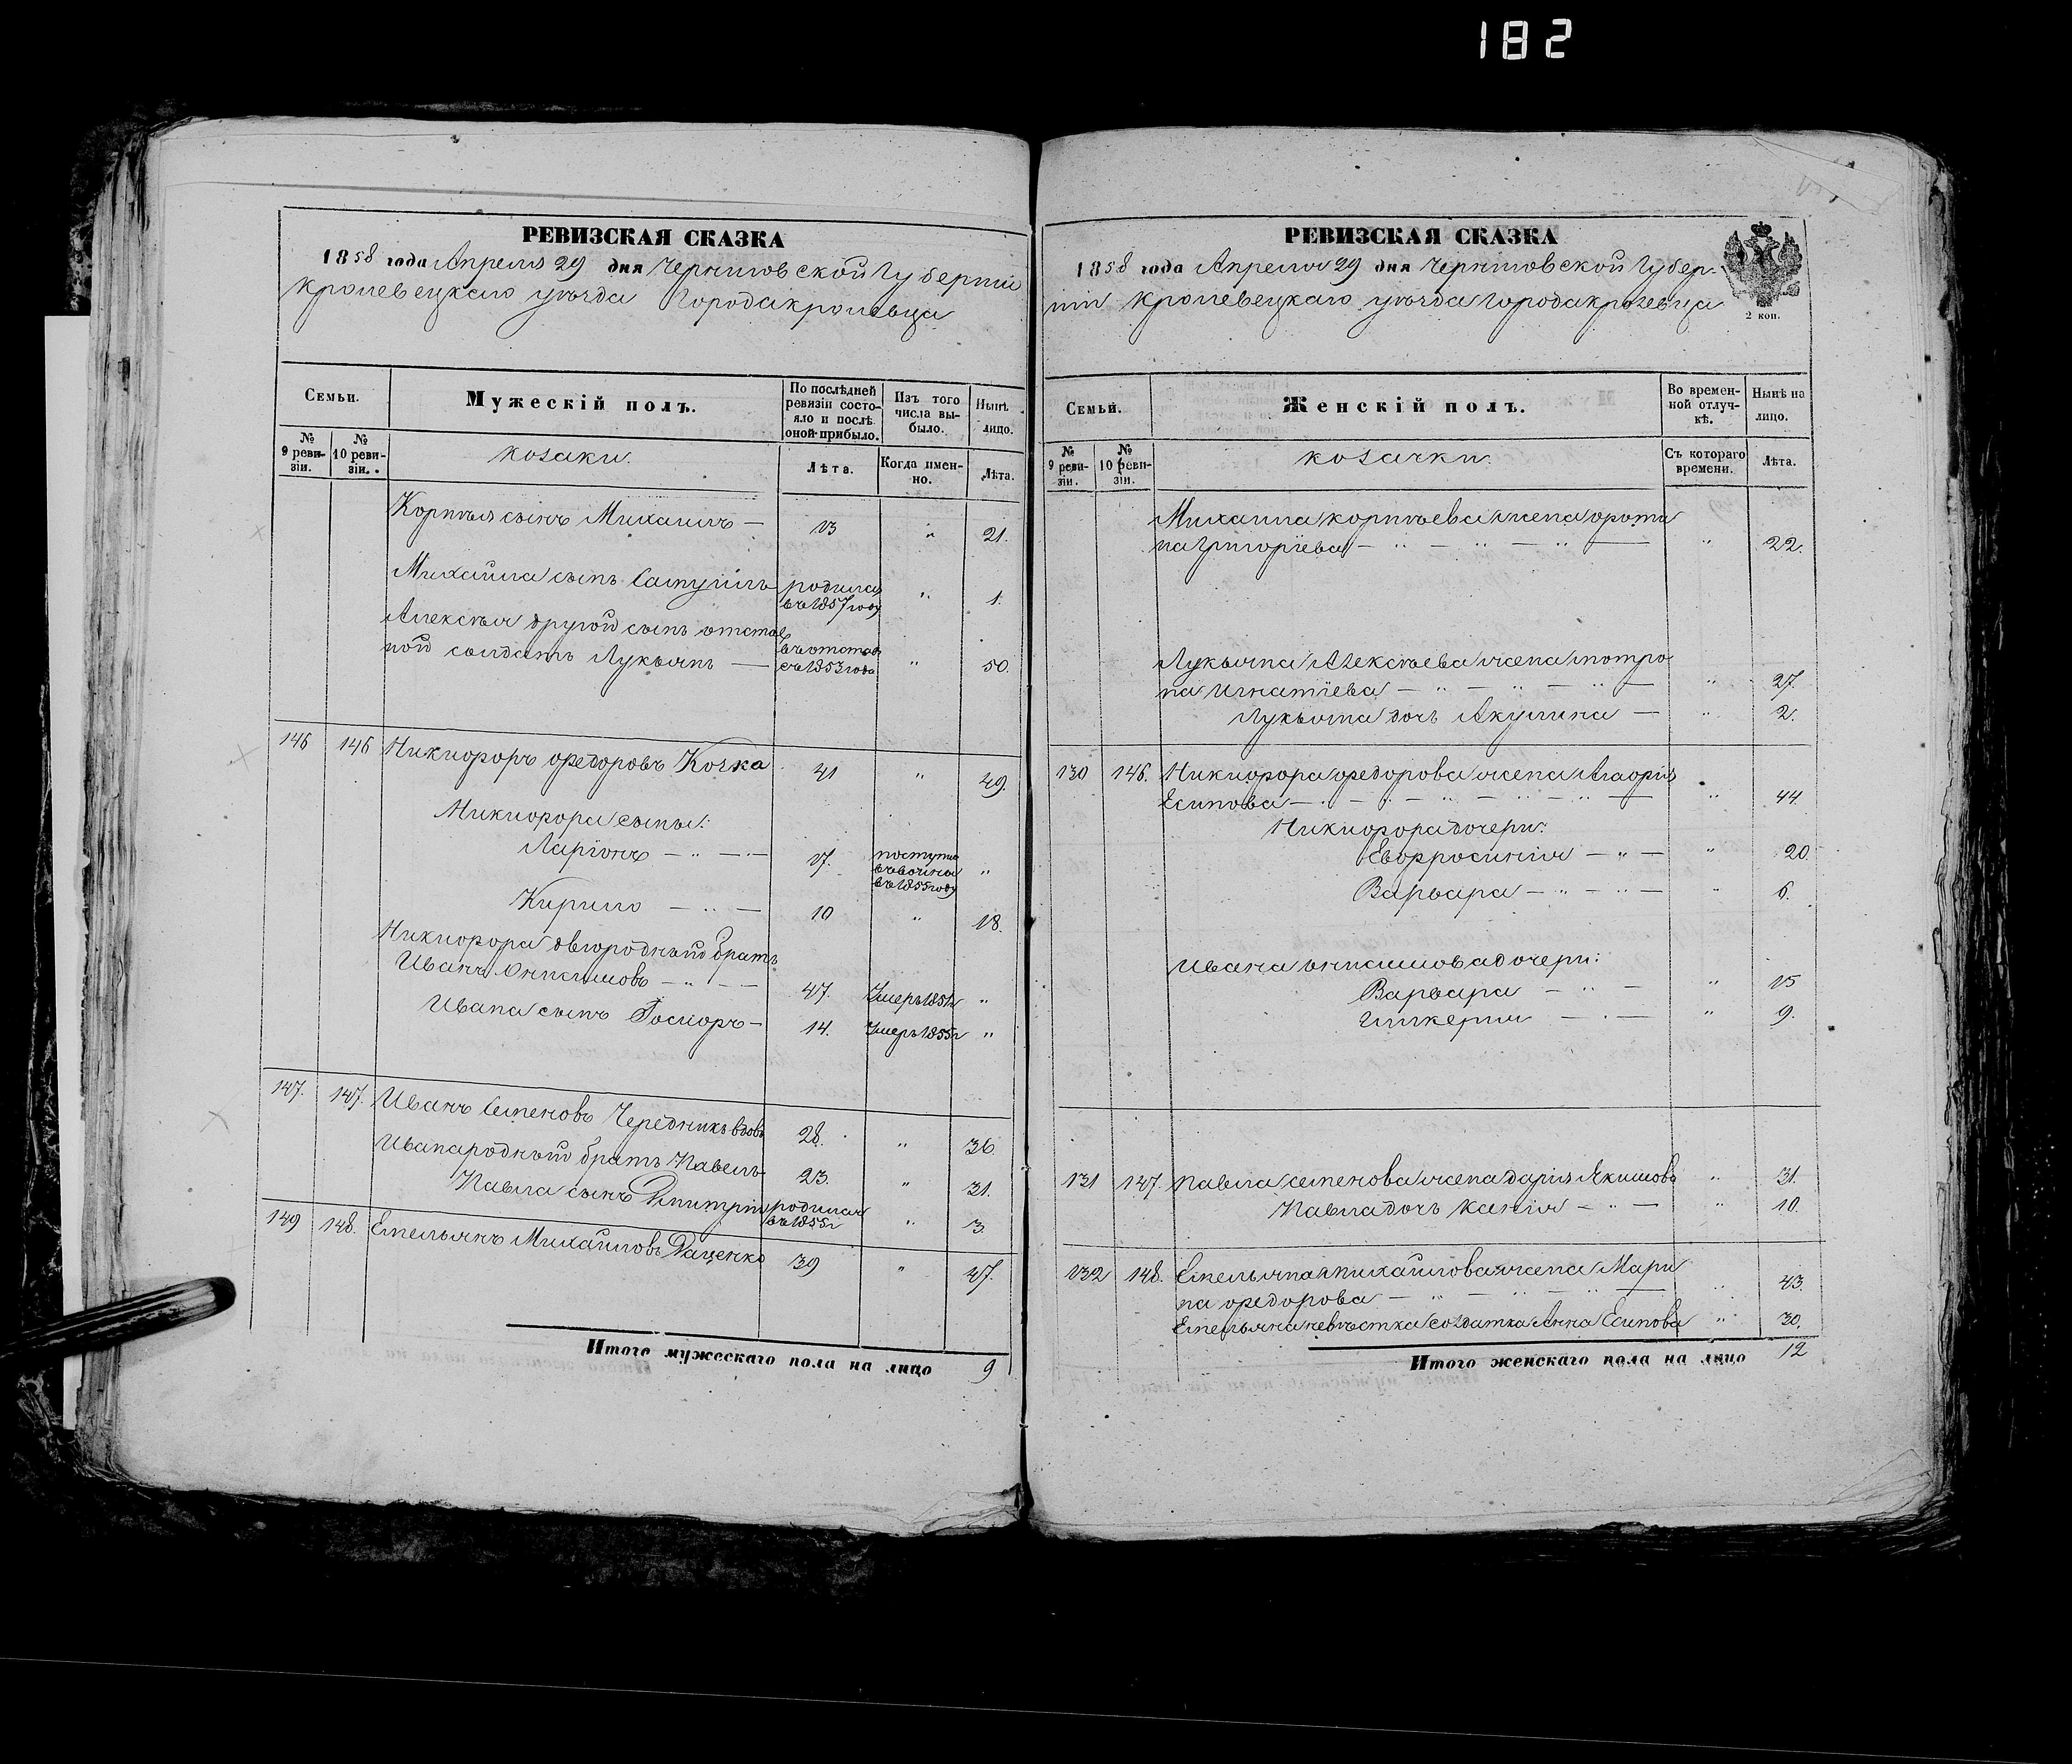 182
РЕВИЗСКАЯ СКАЗКА
1858 года Апреля 29 дня Черниговской Губерніи
Кролевецкаго уѣзда Города Кролевца
Семьи.
Мужескій полъ.
По послѣдней ревизіи состояло и послѣ оной прибыло.
Изъ того числа выбыло.
Нынѣ лицо.
№ 9 ревизіи.
№ 10 ревизіи.
козаки.
Лѣта.
Когда именно.
Лѣта.
Корнѣя сынъ Михаилъ — 13 " 21.
Михаила сынъ Самуилъ родился въ 1857 году " 1.
Алексѣя другой сынъ отстав
ной солдатъ Лукьянъ — въ отстав съ 1853 года " 50.
146 146 Никифоръ Федоровъ Кочка 41 " 49.
Никифора сыны:
Ларіонъ — " — 17. поступил въ 1855 году "
Кирило — " — 10 " 18.
Никифора двоюродный братъ
Иванъ Онисимовъ — " — 47. Умеръ 1851г "
Ивана сынъ — 14. Умеръ 1855г "
147. 147. Иванъ Семеновъ Чередникъ вдовъ 28. " 36.
Ивана родный братъ Павелъ 23. " 31.
Павла сынъ Дмитрій родился въ 1855г " 3.
149 148. Емельянъ Михайловъ Даценко 39 " 47.
Итого мужескаго пола на лицо 9
РЕВИЗСКАЯ СКАЗКА
1858 года Апреля 29 дня Черниговской Губер-
ніи Кролевецкаго уѣзда Города Кролевца
2 коп.
Семьи.
Женскій полъ.
Во временной отлучкѣ.
Нынѣ на лицо.
№ 9 ревизіи.
№ 10 ревизіи.
козачки.
Съ котораго времени.
Лѣта.
Михаила Корнѣева жена
на Григоріева — " — " — " — " 22.
Лукьяна Алексѣева жена Мотро
на Игнатіева — " — " — " — " 27.
Лукьяна дочь Акулина — " 2.
130 146. Никифора Федорова жена Агафія
Есипова — " — " — " — " — " — " 44.
Никифора дочери:
Евфросинія — " — " 20.
Варвара — " — " — " 6.
Ивана Онисимова дочери:
Варвара — " — " 15
Гликерія — " — " 9.
131 147. Павла Семенова жена Дарія Якимова " 31.
Павла дочь Ксенія — " — " 10.
132 148. Емельяна Михайлова жена Мари
на Федорова — " — " — " — " 43.
Емельяна невѣстка солдатка Анна Есипова " 30.
Итого женскаго пола на лицо 12